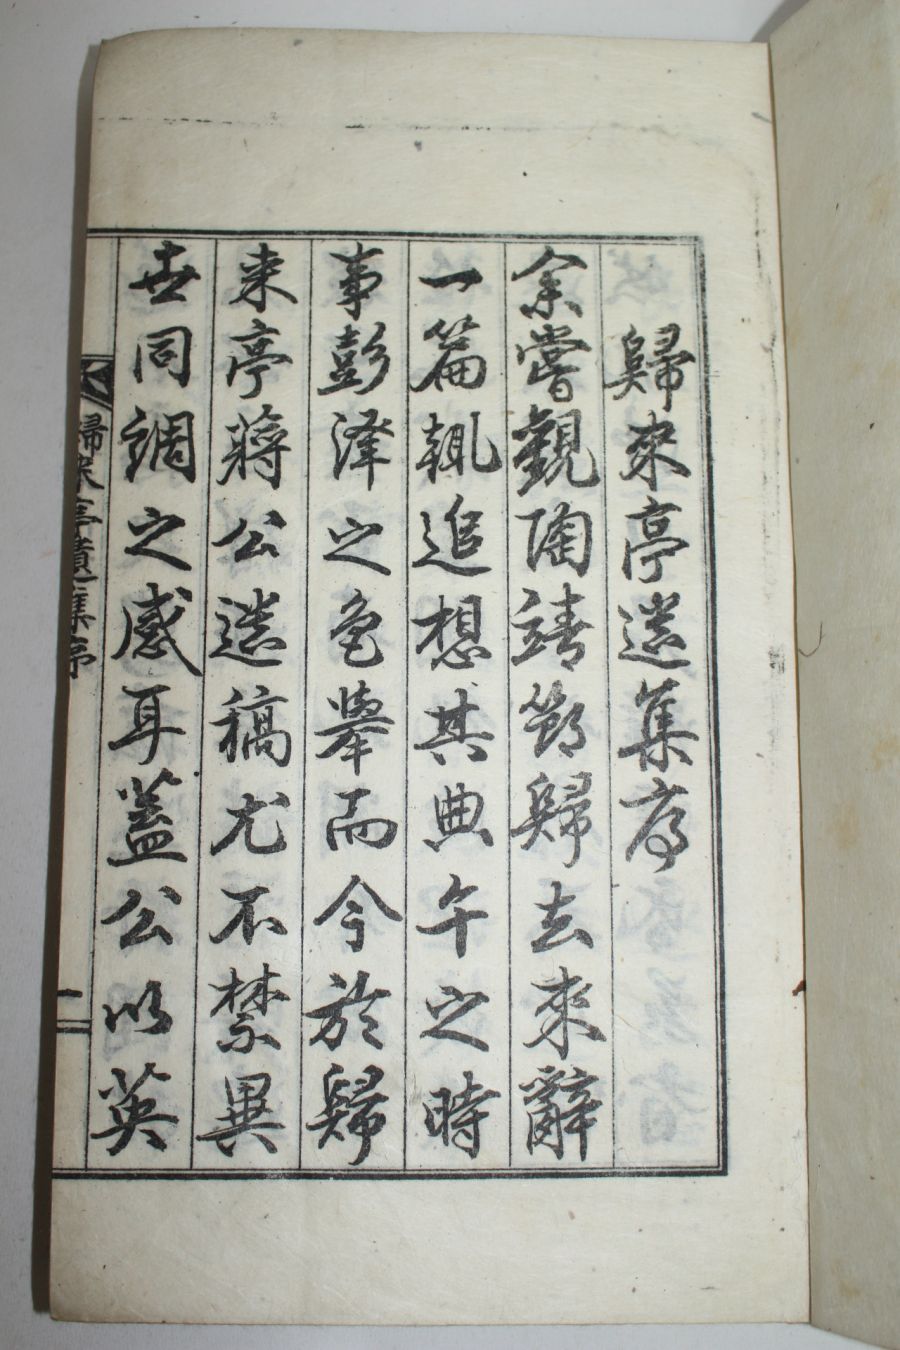 歸來亭遺集序
余嘗觀陶靖節歸去來辭
一篇輒追想其典午之時
事彭澤之色擧而今於歸
来亭蔣公遺稿尤不禁異
世同調之感耳蓋公以英
歸来亭遺集序
一